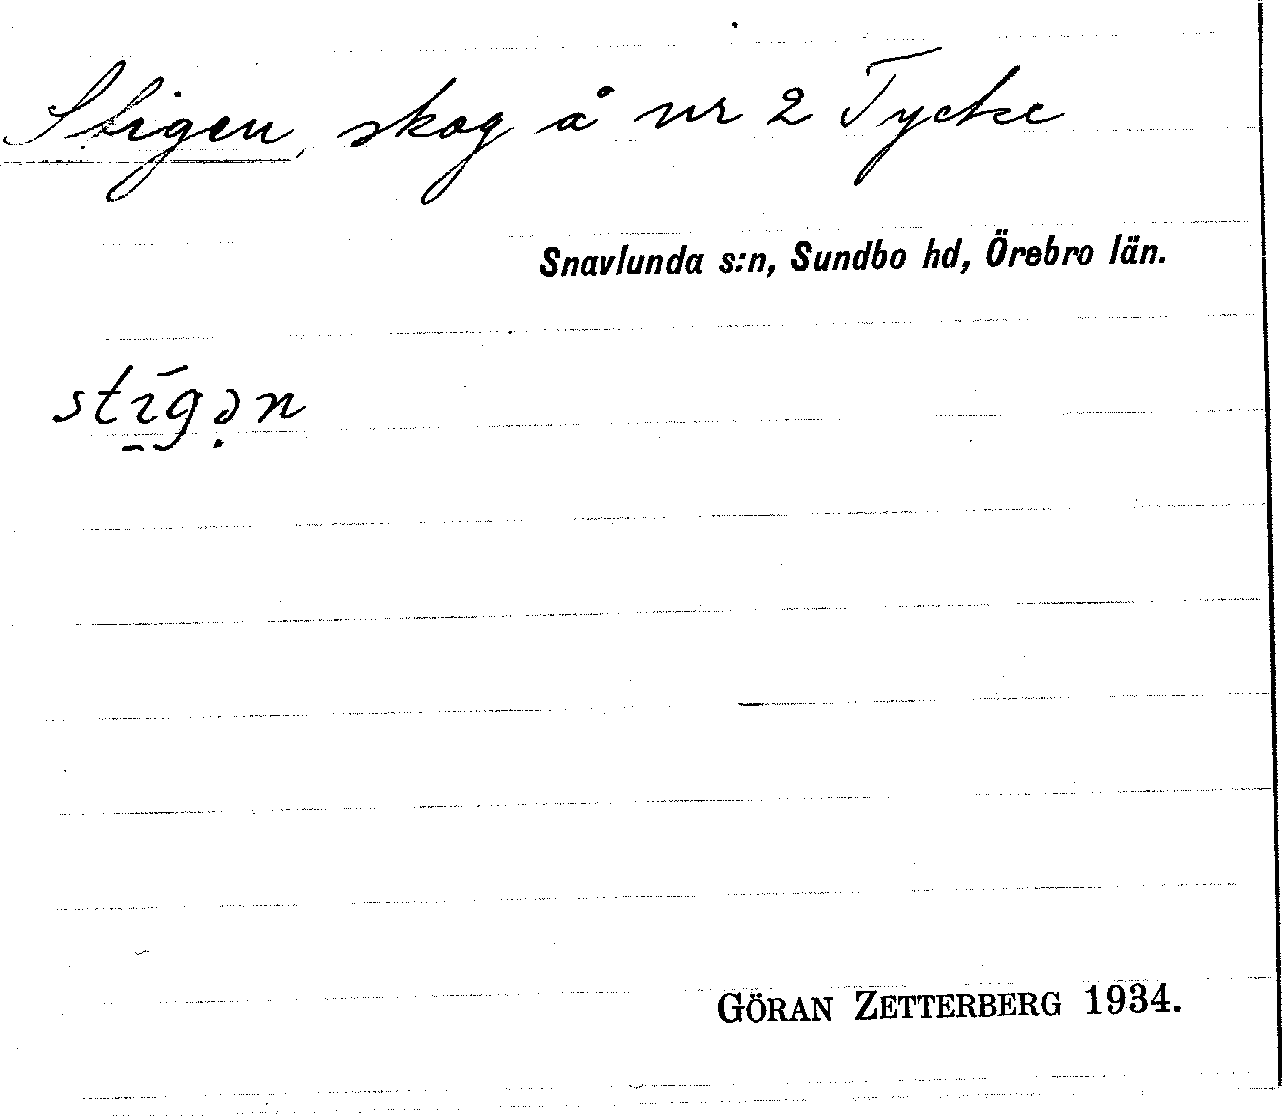 Stigen, skog å nr 2 Tycke
Snavlunda s:n, Sundbo hd, Örebro län.
stīgən
GÖRAN ZETTERBERG 1934.